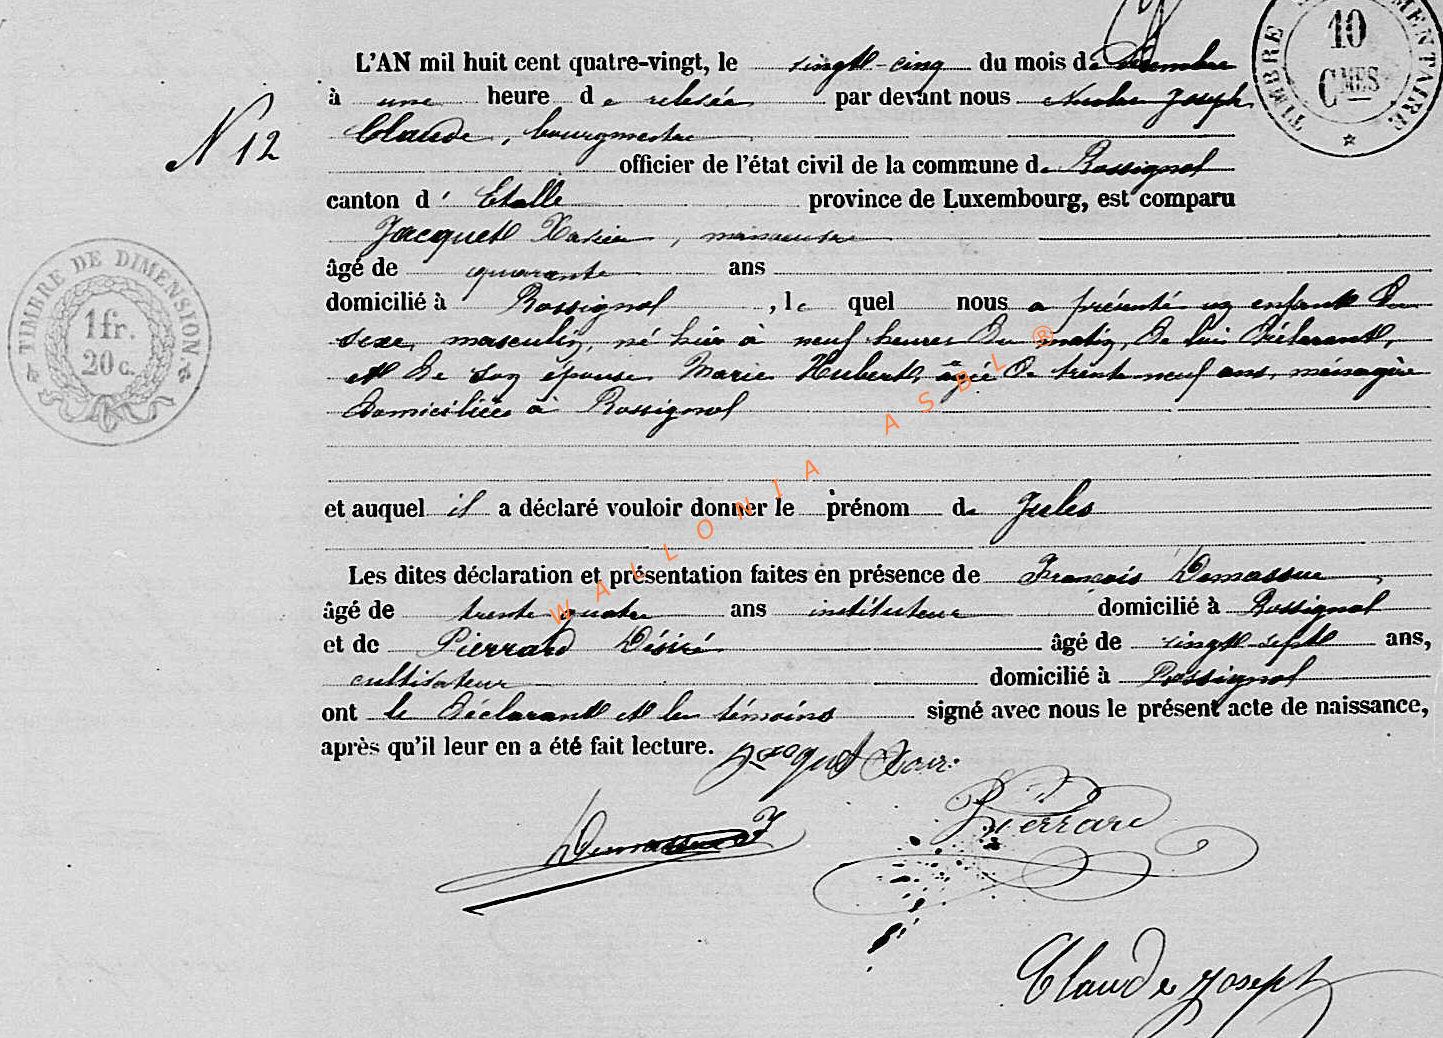 TIMBRE SUPPLÉMENTAIRE
10
CMES
N 12
L'AN mil huit cent quatre-vingt, le vingt-cinq du mois de
à une heure de relevée par devant nous Nicolas Joseph
Claude, bourgmestre
officier de l'état civil de la commune de Rossignol
canton d' Etalle province de Luxembourg, est comparu
Jacquet Xavier, manoeuvre
âgé de quarante ans
domicilié à Rossignol, lequel nous a présenté un enfant du
sexe masculin, né hier à neuf heures du matin, de lui déclarant,
et de son épouse Marie Hubert, âgée de trente neuf ans, ménagère
domiciliée à Rossignol
et auquel il a déclaré vouloir donner le prénom de Jules
Les dites déclaration et présentation faites en présence de François Demasseur,
âgé de trente quatre ans instituteur domicilié à Rossignol
et de Pierrard Désiré âgé de vingt-sept ans,
cultivateur domicilié à Rossignol
ont le déclarant et les témoins signé avec nous le présent acte de naissance,
après qu'il leur en a été fait lecture. Jacquet Xavier
Pierrard
Claude Joseph
TIMBRE DE DIMENSION
1 fr.
20 c.
WALLONIA ASBL ®